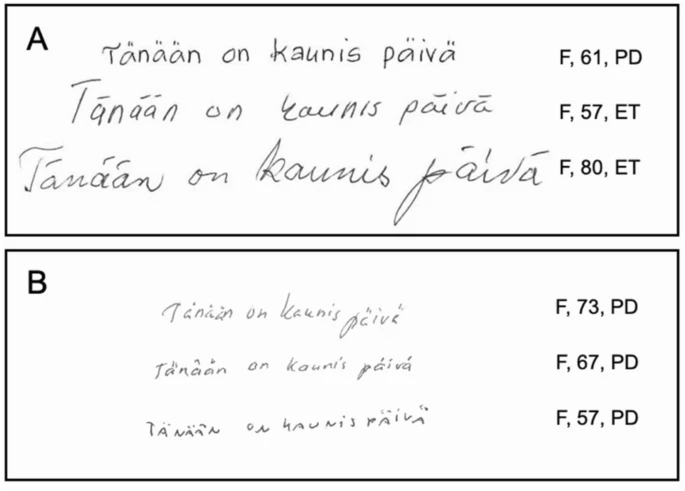 A
Tänään on kaunis päivä F, 61, PD
Tänään on kaunis päivä F, 57, ET
Tänään on kaunis päivä F, 80, ET
B
Tänään on kaunis päivä F, 73, PD
Tänään on kaunis päivä F, 67, PD
TÄNÄÄN ON KAUNIS PÄIVÄ F, 57, PD